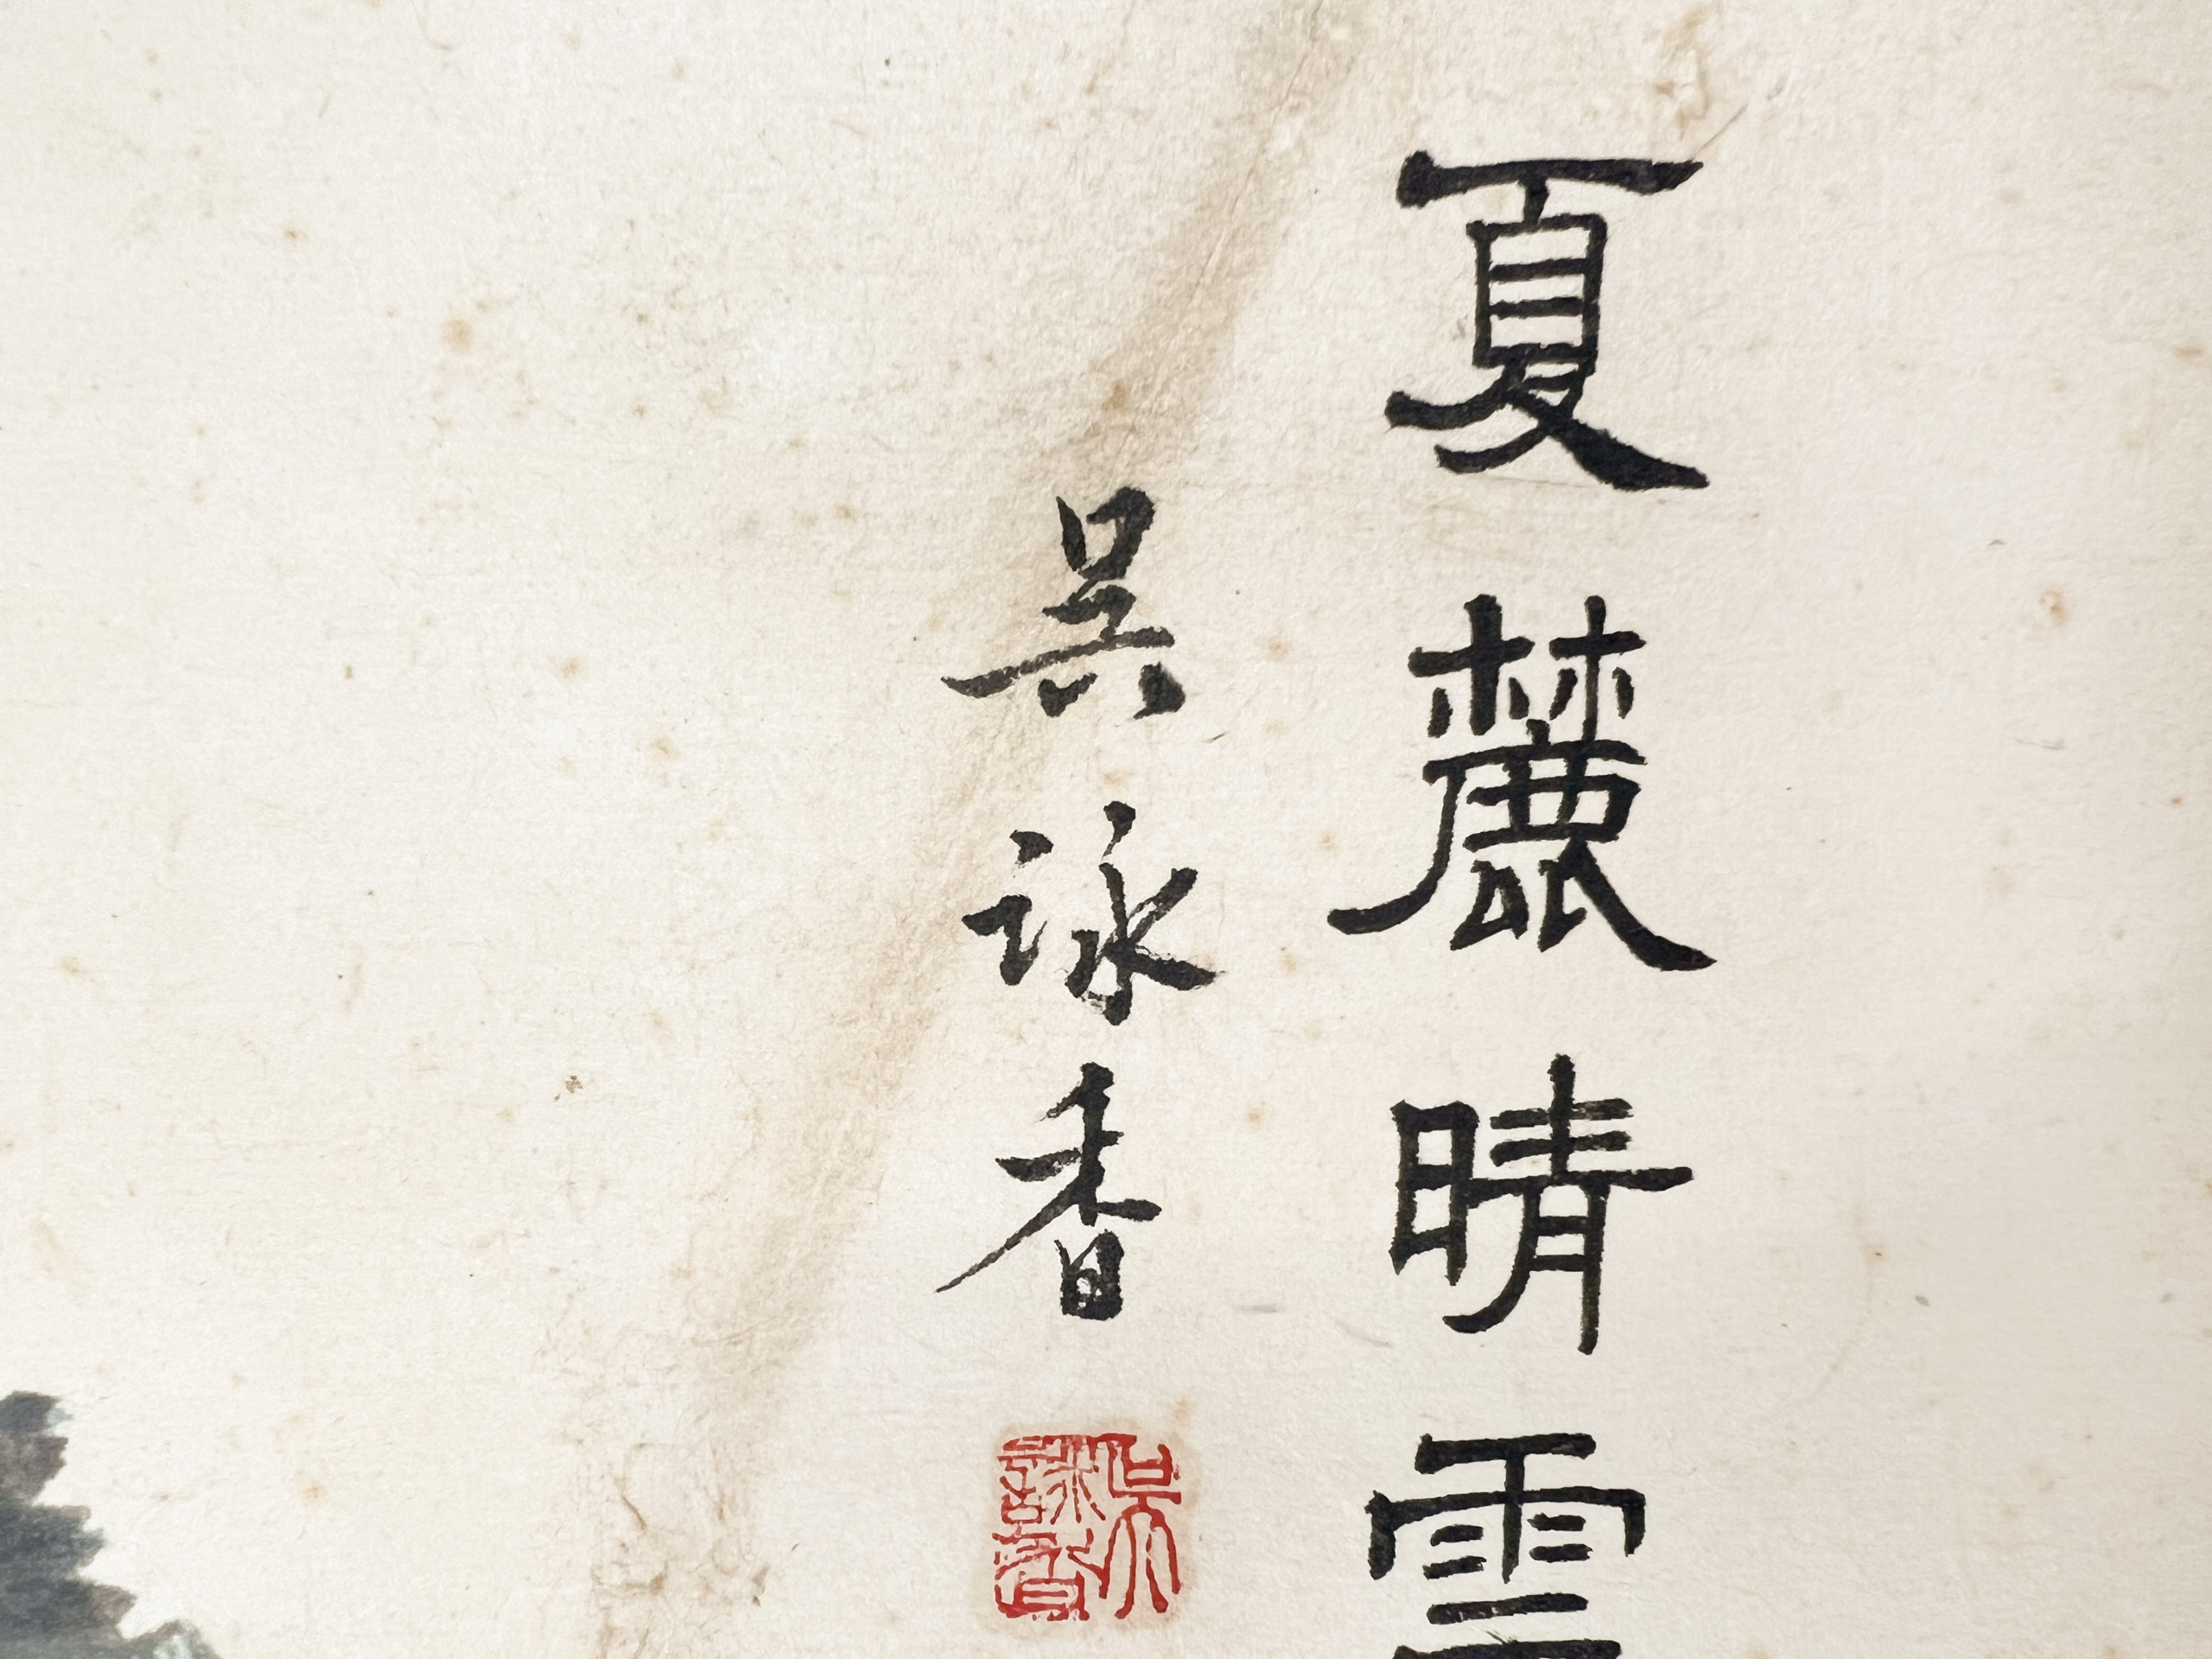 夏麓晴雲
吴詠香
吳詠香